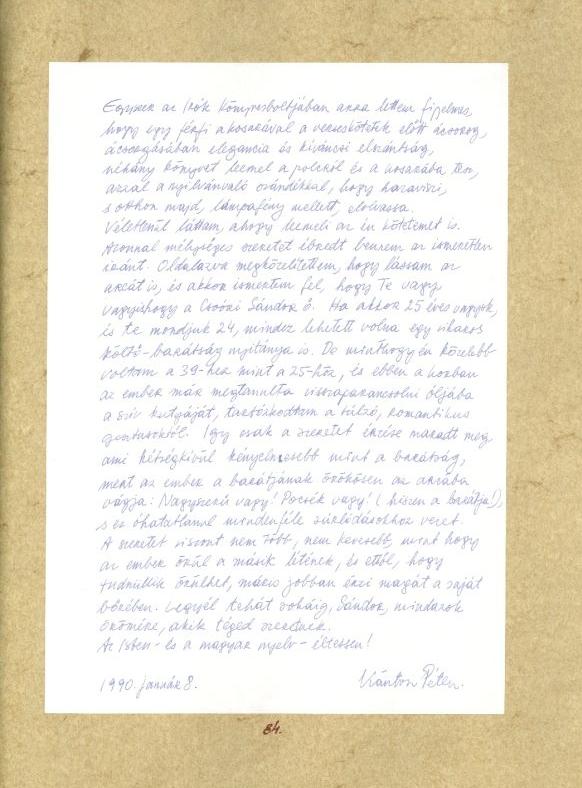 Egyszer az Írók Könyvesboltjában arra lettem figyelmes,
hogy egy férfi a kosarával a verseskötetek előtt ácsorog,
ácsorgásában elegancia és kíváncsi elszántság,
néhány könyvet leemel a polcról és a kosarába tesz,
azzal a nyilvánvaló szándékkal, hogy hazaviszi,
s otthon majd, lámpafény mellett, elolvassa.
Véletlenül láttam, ahogy leemeli az én kötetemet is.
Azonnal mélységes szeretet ébredt bennem az ismeretlen
iránt. Oldalazva megközelítettem, hogy lássam az
arcát is, és akkor ismertem fel, hogy Te vagy
vagyishogy a Csoóri Sándor ő. Ha akkor 25 éves vagyok,
és te mondjuk 24, mindez lehetett volna egy viharos
költő-barátság nyitánya is. De minthogy én közelebb
voltam a 39-hez mint a 25-höz, és ebben a korban
az ember már megtanulta visszaparancsolni óljába
a szív kutyáját, tartózkodtam a túlzó, romantikus
gesztusoktól. Így csak a szeretet érzése maradt meg
ami kétségkívül kényelmesebb mint a barátság,
mert az ember a barátjának örökösen az arcába
vágja: Nagyszerű vagy! Pocsék vagy! (hiszen a barátja!),
s ez óhatatlanul mindenféle súrlódásokhoz vezet.
A szeretet viszont nem több, nem kevesebb, mint hogy
az ember örül a másik létének, és ettől, hogy
tudniillik örülhet, máris jobban érzi magát a saját
bőrében. Legyél tehát sokáig, Sándor, mindazok
örömére, akik téged szeretnek.
Az Isten - és a magyar nyelv - éltessen!
1990. január 8. Kántor Péter.
84.